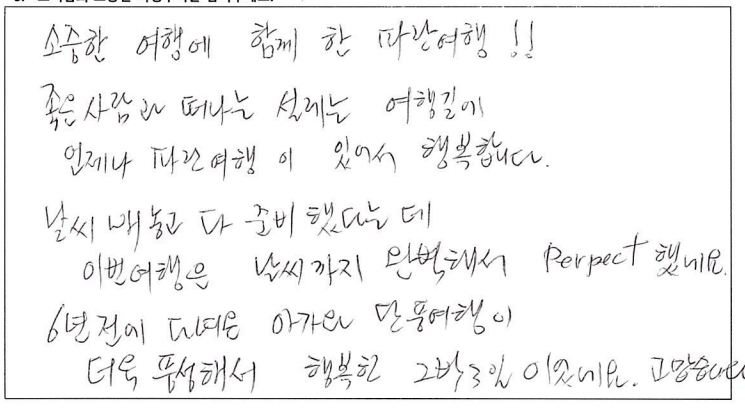 소중한 여행에 함께 한 파란여행 !!
좋은사람과 떠나는 설레는 여행길에
언제나 파란여행 이 있어서 행복합니다.
날씨 빼놓고 다 준비했다는데
이번여행은 날씨까지 완벽해서 Perpect 했네요.
6년전에 다녀온 아가와 단풍여행이
더욱 풍성해서 행복한 2박3일 이었네요. 고맙습니다